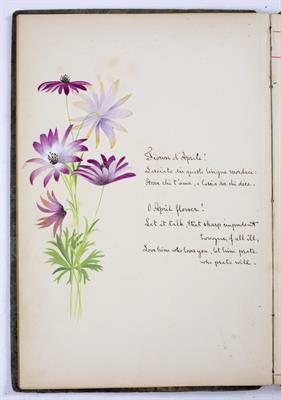 Fiorin d'Aprile!
Lasciate dir queste lingue mordace:
Amar chi t'ama, e lascia dir chi dice.
O April flower!
Let it talk, that sharp impudent
Tongue, of all ill,
Love him who loves you, let him prate
who prate will.